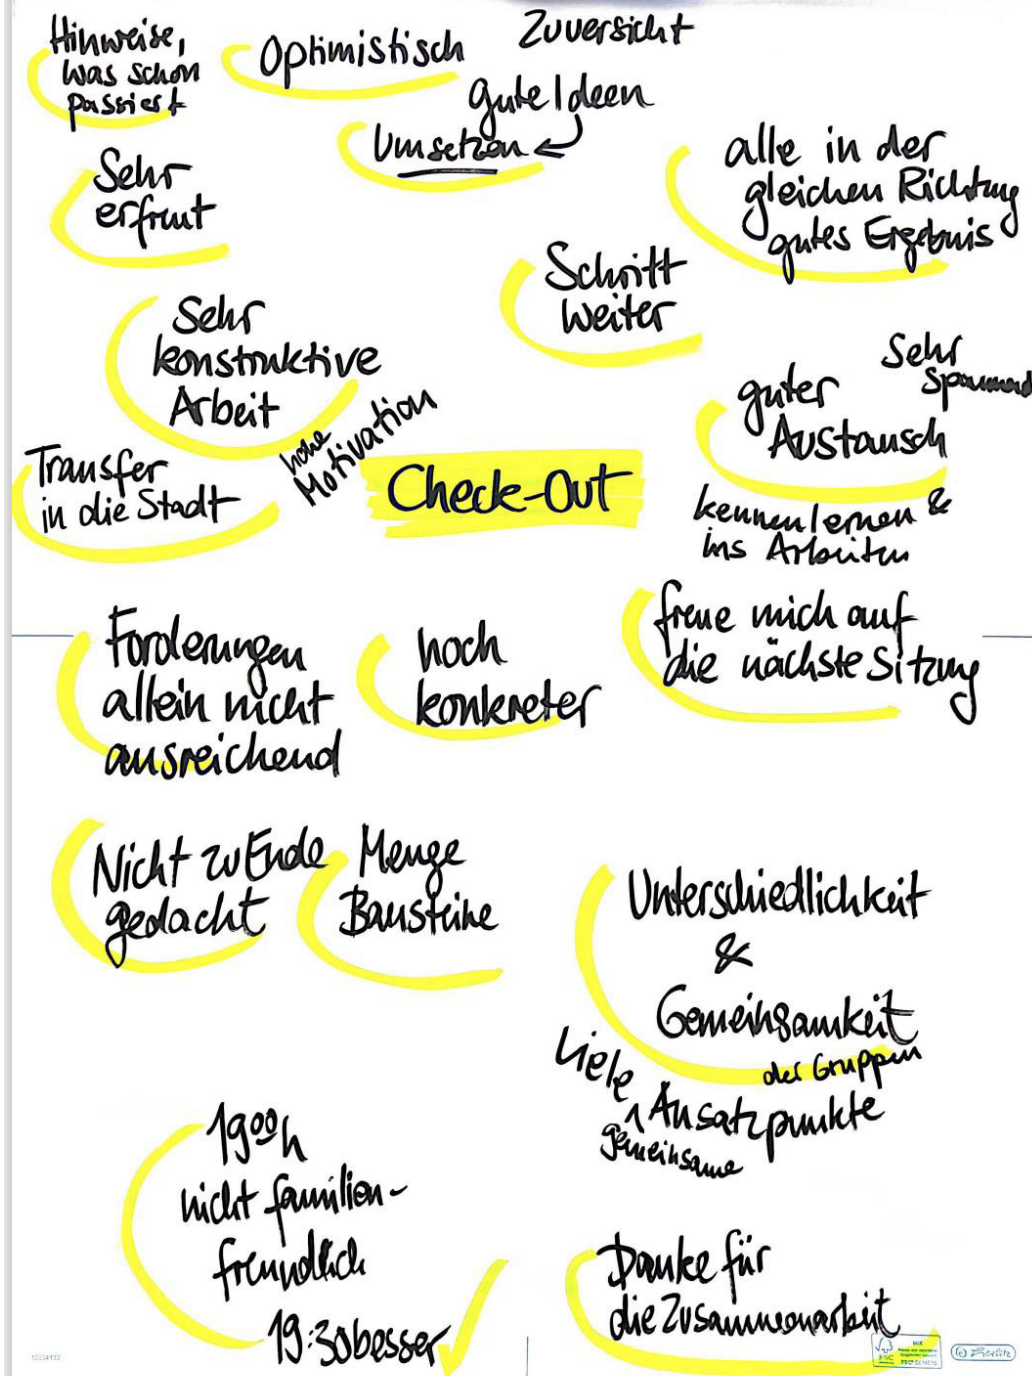 Hinweise,
was schon
passiert
Optimistisch
Zuversicht
gute Ideen
Umsetzen
Sehr
erfreut
alle in der
gleichen Richtung
gutes Ergebnis
Schritt
weiter
Sehr
konstruktive
Arbeit
hohe
Motivation
Sehr
spannend
guter
Austausch
kennenlernen &
ins Arbeiten
Transfer
in die Stadt
Check-Out
Forderungen
allein nicht
ausreichend
noch
konkreter
freue mich auf
die nächste Sitzung
Nicht zu Ende
gedacht
Menge
Bausteine
Unterschiedlichkeit
&
Gemeinsamkeit
der Gruppen
Viele
Ansatzpunkte
gemeinsame
19⁰⁰h
nicht familien-
freundlich
19:30 besser
Danke für
die Zusammenarbeit